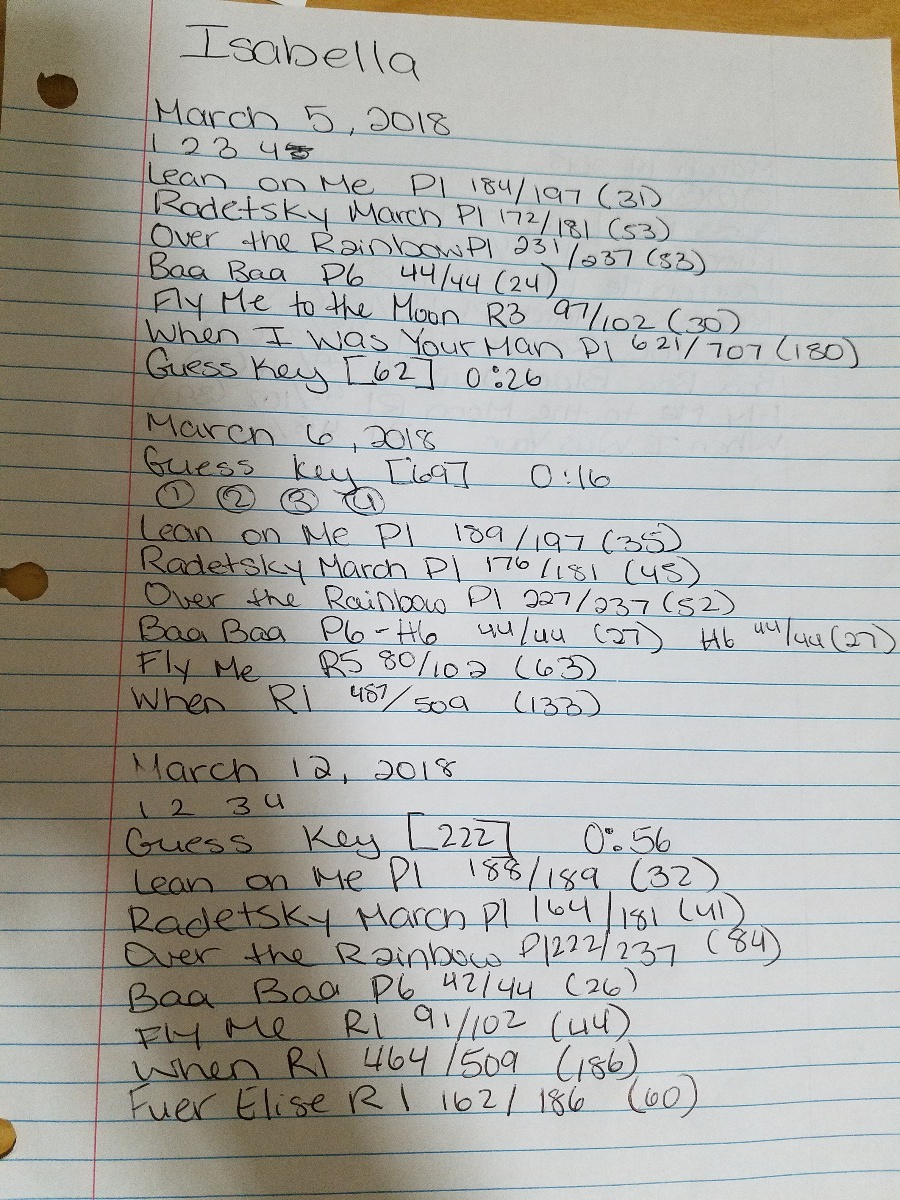 Isabella
March 5, 2018
1 2 3 4
Lean on Me P1 184/197 (31)
Radetsky March P1 172/181 (53)
Over the Rainbow P1 231/237 (83)
Baa Baa P6 44/44 (24)
Fly Me to the Moon R3 97/102 (30)
When I Was Your Man P1 621/707 (180)
Guess Key [62] 0:26
March 6, 2018
Guess Key [69] 0:16
① ② ③ ④
Lean on Me P1 189/197 (35)
Radetsky March P1 176/181 (45)
Over the Rainbow P1 227/237 (52)
Baa Baa P6-H6 44/44 (27) H6 44/44 (27)
Fly Me R5 80/102 (63)
When R1 487/509 (133)
March 12, 2018
1 2 3 4
Guess Key [222] 0:56
Lean on Me P1 188/189 (32)
Radetsky March P1 164/181 (41)
Over the Rainbow P1 222/237 (84)
Baa Baa P6 42/44 (26)
Fly Me R1 91/102 (44)
When R1 464/509 (186)
Fuer Elise R1 162/186 (60)